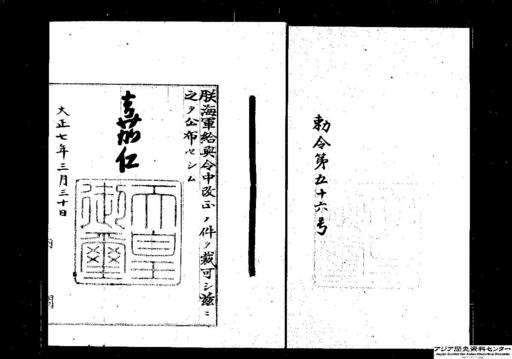 勅令第五十六号
朕海軍給與令中改正ノ件ヲ裁可シ茲ニ
之ヲ公布セシム
嘉仁
天皇
御璽
大正七年三月三十日
内閣
アジア歴史資料センター
Japan Center for Asian Historical Records